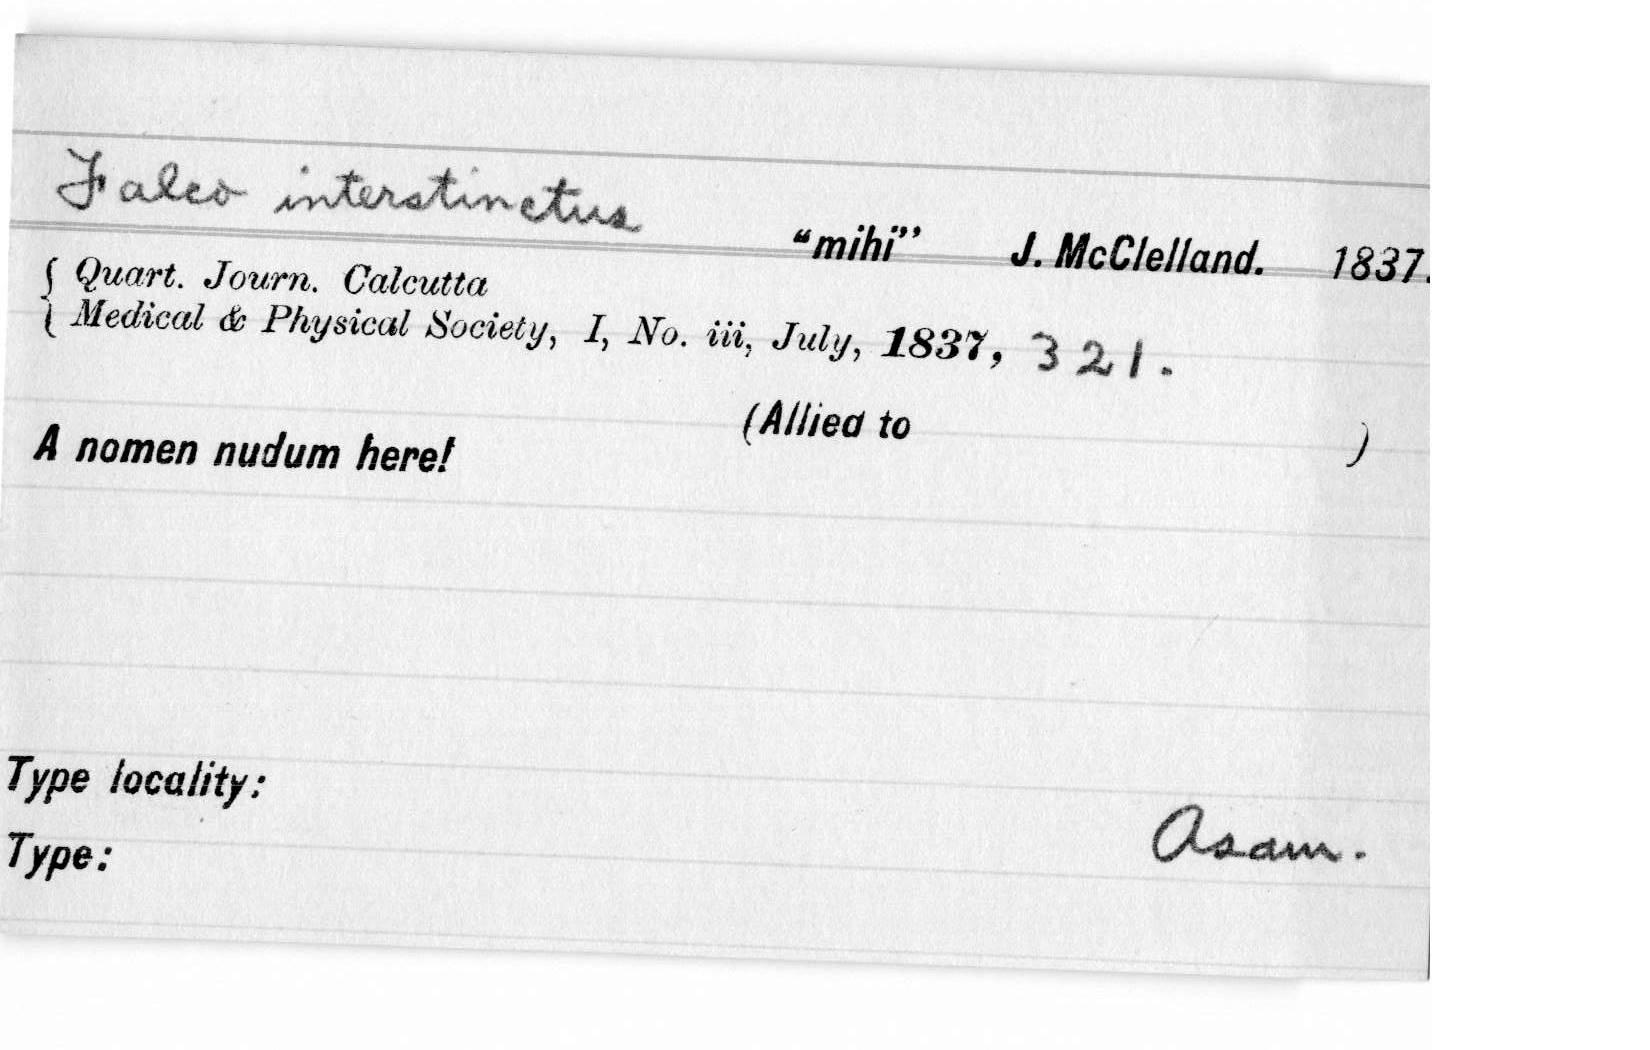 Falco interstinctus
“mihi” J. McClelland. 1837.
{ Quart. Journ. Calcutta
{ Medical & Physical Society, I, No. iii, July, 1837, 321.
(Allied to )
A nomen nudum here!
Type locality:
Asam.
Type: